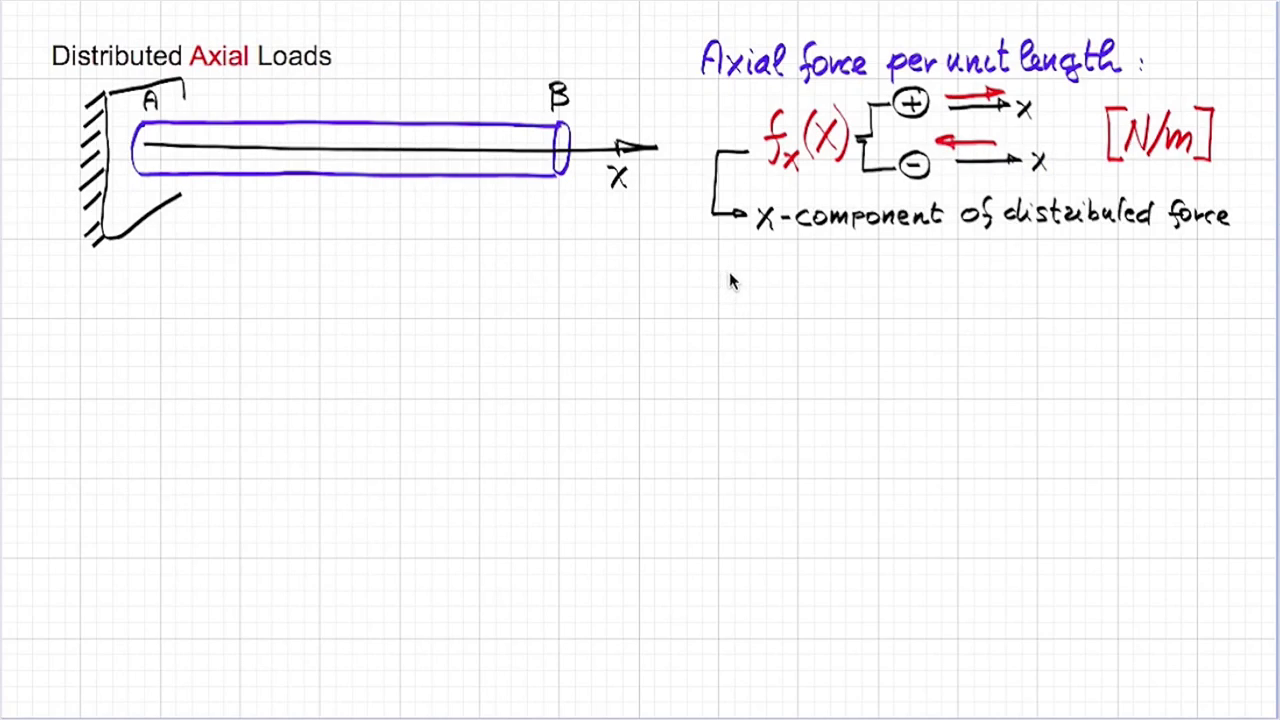 Distributed Axial Loads
A
B
x
Axial force per unit length :
fx(x)
+ x
- x
[N/m]
x-component of distributed force